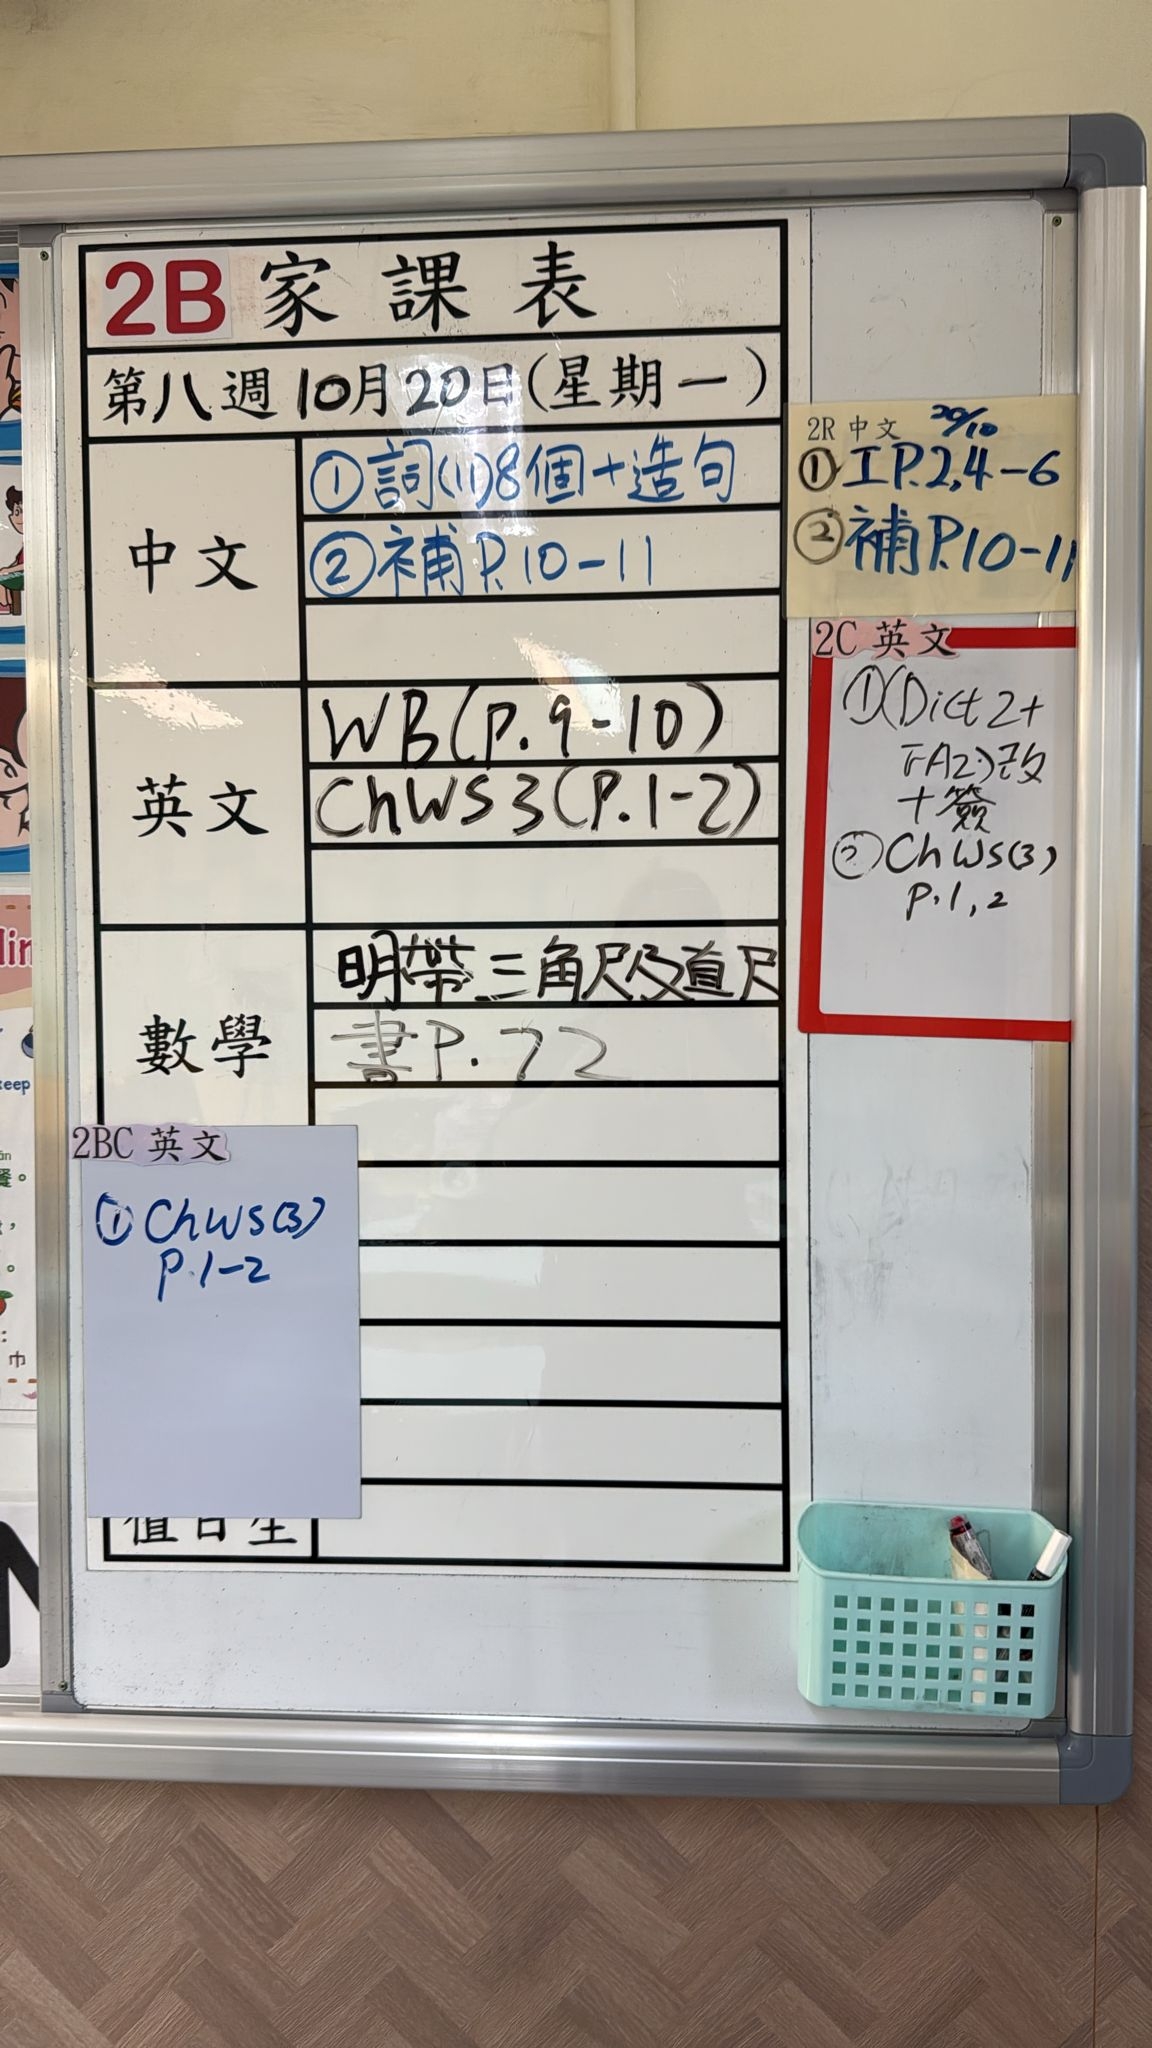 2B 家課表
第八週 10月20日(星期一)
中文
①詞(11)8個+造句
②補P.10-11
英文
WB(P.9-10)
ChWS3(P.1-2)
數學
明帶三角尺及直尺
書P.72
值日生
2BC 英文
① ChWS(3)
P.1-2
2R 中文 20/10
①工P.2,4-6
②補P.10-11
2C 英文
①(Dict 2+
FA2)改
+簽
②ChWS(3)
P.1,2
lin
keep
餐。
巾